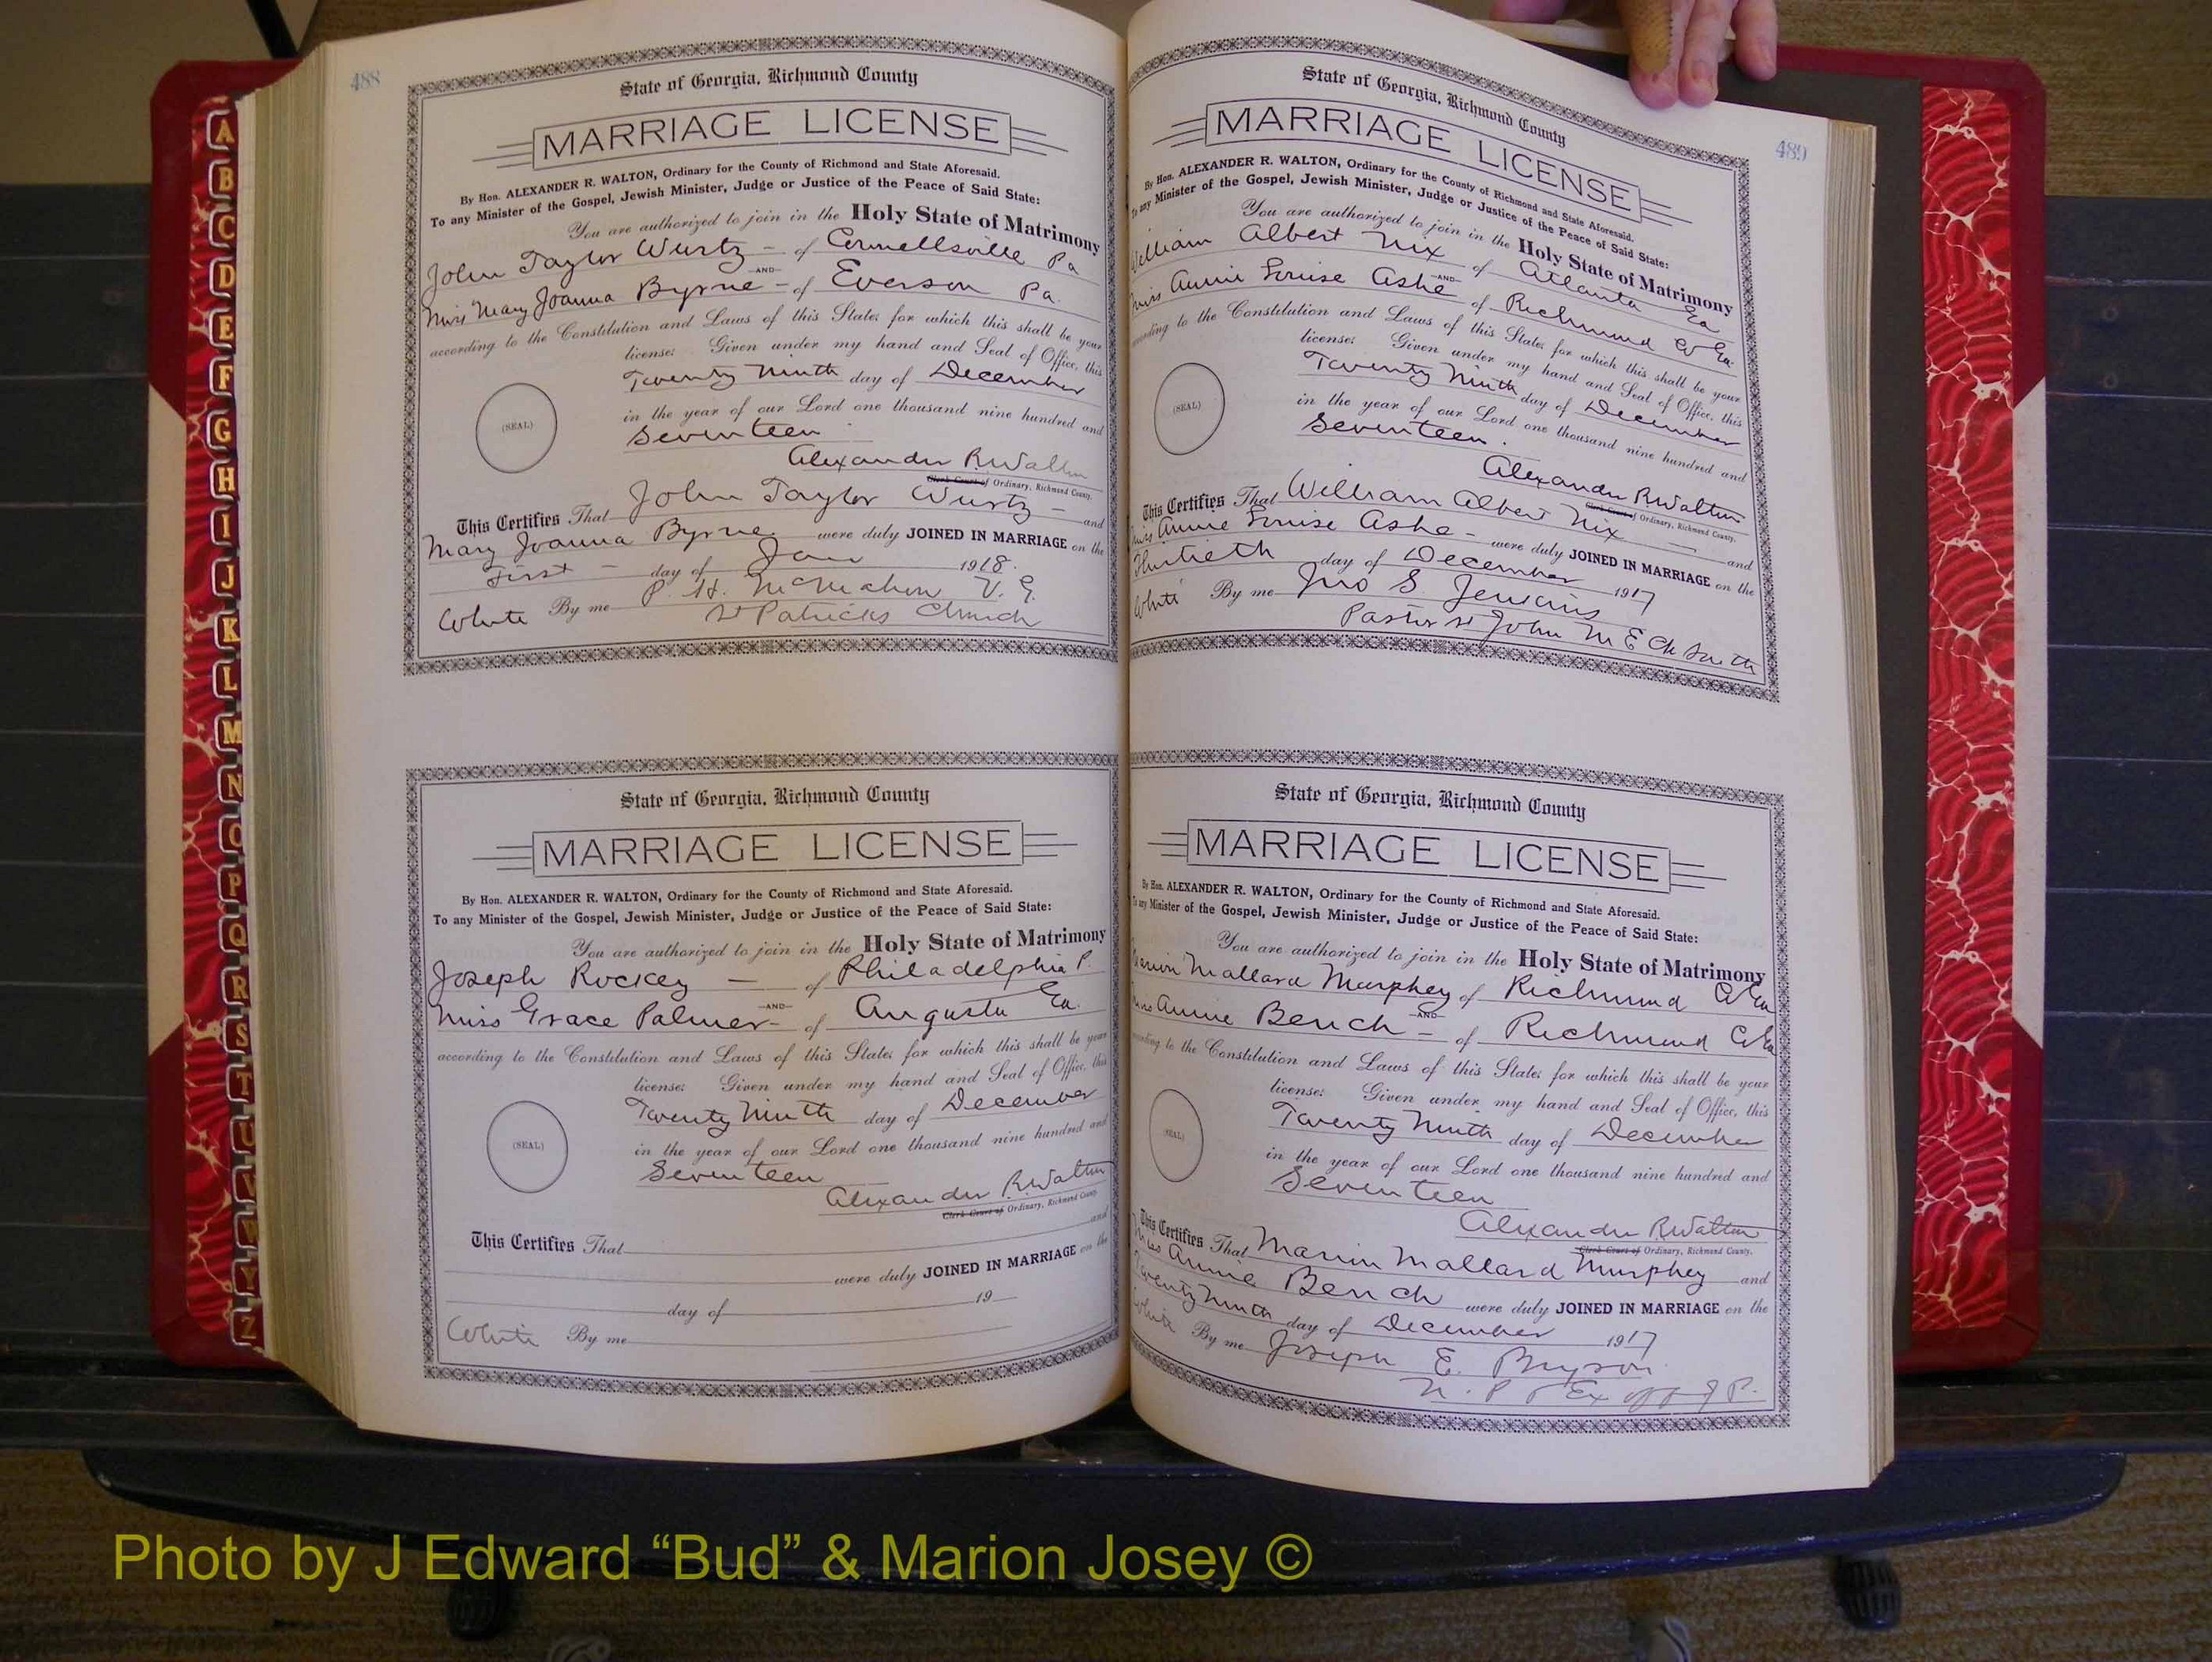 A
B
C
D
E
F
G
H
I
J
K
L
M
N
O
P
Q
R
S
T
U
V
W
Y
Z
488
State of Georgia, Richmond County
MARRIAGE LICENSE
By Hon. ALEXANDER R. WALTON, Ordinary for the County of Richmond and State Aforesaid.
To any Minister of the Gospel, Jewish Minister, Judge or Justice of the Peace of Said State:
You are authorized to join in the Holy State of Matrimony
John Taylor Wurtz - of Connellsville Pa
AND
Miss Mary Joanna Byrne - of Everson Pa.
according to the Constitution and Laws of this State; for which this shall be your
license: Given under my hand and Seal of Office, this
Twenty Ninth day of December
in the year of our Lord one thousand nine hundred and
(SEAL)
Seventeen
Alexander R Walton
Clerk Court of Ordinary, Richmond County.
This Certifies That John Taylor Wurtz - and
Mary Joanna Byrne were duly JOINED IN MARRIAGE on the
First - day of Jan 1918.
White By me P. H. McMahon V. G.
St Patricks Church
State of Georgia, Richmond County
MARRIAGE LICENSE
By Hon. ALEXANDER R. WALTON, Ordinary for the County of Richmond and State Aforesaid.
To any Minister of the Gospel, Jewish Minister, Judge or Justice of the Peace of Said State:
You are authorized to join in the Holy State of Matrimony
Joseph Rockey - of Philadelphia P.
AND
Miss Grace Palmer - of Augusta Ga.
according to the Constitution and Laws of this State; for which this shall be your
license: Given under my hand and Seal of Office, this
Twenty Ninth day of December
in the year of our Lord one thousand nine hundred and
(SEAL)
Seventeen
Alexander R Walton
Clerk Court of Ordinary, Richmond County.
This Certifies That and
were duly JOINED IN MARRIAGE on the
day of 19
White By me
489
State of Georgia, Richmond County
MARRIAGE LICENSE
By Hon. ALEXANDER R. WALTON, Ordinary for the County of Richmond and State Aforesaid.
To any Minister of the Gospel, Jewish Minister, Judge or Justice of the Peace of Said State:
You are authorized to join in the Holy State of Matrimony
William Albert Nix of Atlanta Ga
AND
Miss Annie Louise Ashe of Richmond Co Ga.
according to the Constitution and Laws of this State; for which this shall be your
license: Given under my hand and Seal of Office, this
Twenty Ninth day of December
in the year of our Lord one thousand nine hundred and
(SEAL)
Seventeen.
Alexander R Walton
Clerk Court of Ordinary, Richmond County.
This Certifies That William Albert Nix - and
Miss Annie Louise Ashe - were duly JOINED IN MARRIAGE on the
Thirtieth day of December 1917
White By me Jno S. Jenkins
Pastor St John M E Ch South
State of Georgia, Richmond County
MARRIAGE LICENSE
By Hon. ALEXANDER R. WALTON, Ordinary for the County of Richmond and State Aforesaid.
To any Minister of the Gospel, Jewish Minister, Judge or Justice of the Peace of Said State:
You are authorized to join in the Holy State of Matrimony
Marion Mallard Murphey of Richmond Co Ga
AND
Miss Annie Bench - of Richmond Co Ga
according to the Constitution and Laws of this State; for which this shall be your
license: Given under my hand and Seal of Office, this
Twenty Ninth day of December
in the year of our Lord one thousand nine hundred and
(SEAL)
Seventeen
Alexander R Walton
Clerk Court of Ordinary, Richmond County.
This Certifies That Marion Mallard Murphey and
Miss Annie Bench were duly JOINED IN MARRIAGE on the
Twenty Ninth day of December 1917
White By me Joseph E. Bryson
N. P & Ex off J P.
Photo by J Edward “Bud” & Marion Josey ©